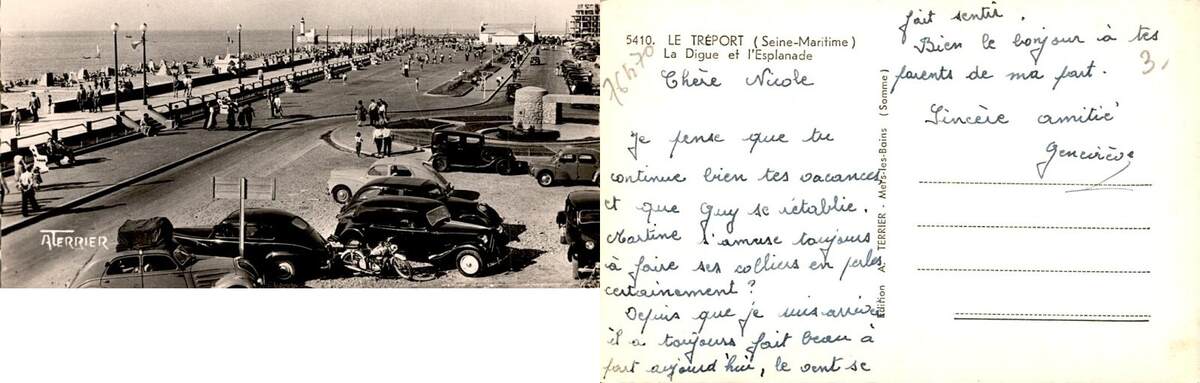 A. TERRIER
5410. LE TRÉPORT (Seine-Maritime)
La Digue et l'Esplanade
76470
Chère Nicole
Je pense que tu
continue bien tes vacances
et que Guy se rétablie.
Martine s'amuse toujours
à faire ses colliers en perles
certainement?
Depuis que je suis arrivée
il a toujours fait beau à
part aujourd'hui, le vent se
Edition A. TERRIER - Mers-les-Bains (Somme)
fait sentir.
Bien le bonjour à tes
parents de ma part.
3.
Sincère amitié
Geneviève